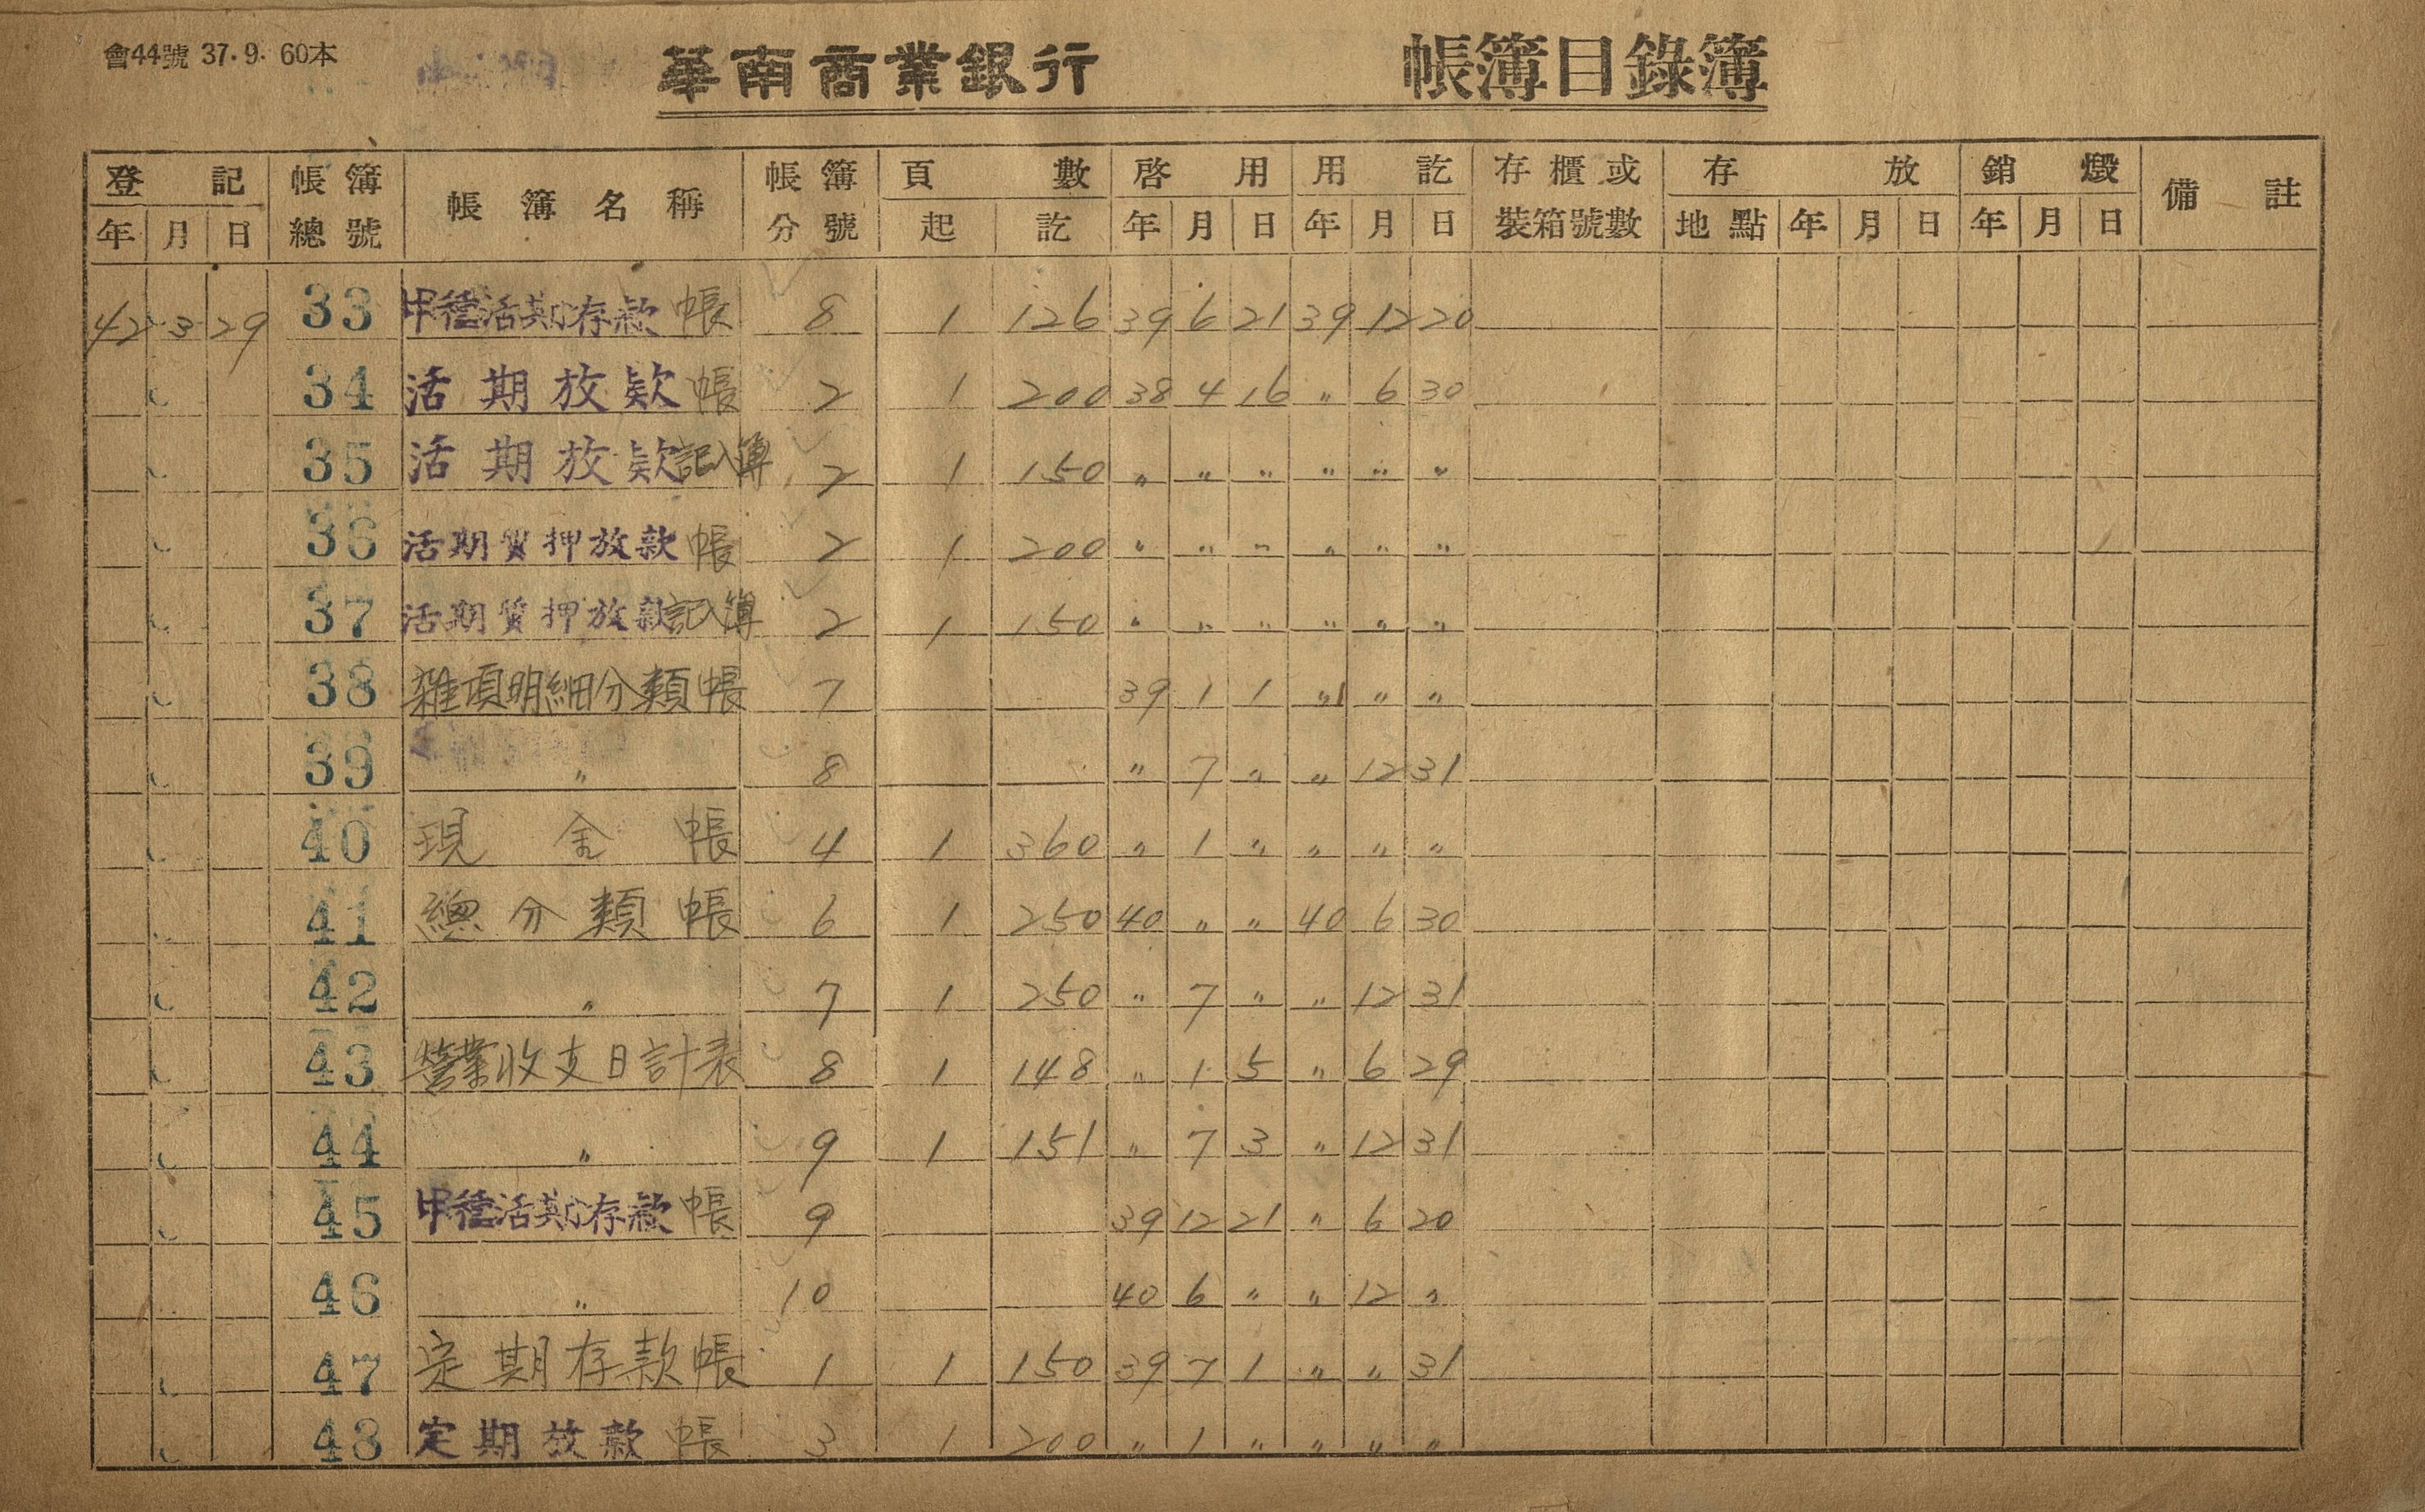 會44號 37.9. 60本
華南商業銀行 帳簿目錄簿
登記 帳簿總號 帳簿名稱 帳簿分號 頁數 啓用 用訖 存櫃或裝箱號數 存放 銷燬 備註
年 月 日 起 訖 年 月 日 年 月 日 地點 年 月 日 年 月 日
42 3 29 33 甲種活期存款帳 8 1 126 39 6 21 39 12 20
〃 34 活期放款帳 2 1 200 38 4 16 〃 6 30
〃 35 活期放款記入簿 2 1 150 〃 〃 〃 〃 〃 〃
〃 36 活期質押放款帳 2 1 200 〃 〃 〃 〃 〃 〃
〃 37 活期質押放款記入簿 2 1 150 〃 〃 〃 〃 〃 〃
〃 38 雜項明細分類帳 7 39 1 1 〃 〃 〃
〃 39 〃 8 〃 7 〃 〃 12 31
〃 40 現金帳 4 1 360 〃 1 〃 〃 〃 〃
〃 41 總分類帳 6 1 250 40 〃 〃 40 6 30
〃 42 〃 7 1 250 〃 7 〃 〃 12 31
〃 43 營業收支日計表 8 1 148 〃 1 5 〃 6 29
〃 44 〃 9 1 151 〃 7 3 〃 12 31
〃 45 甲種活期存款帳 9 39 12 21 〃 6 20
〃 46 〃 10 40 6 〃 〃 12 〃
〃 47 定期存款帳 1 1 150 39 7 1 〃 〃 31
〃 48 定期放款帳 3 1 200 〃 1 〃 〃 〃 〃